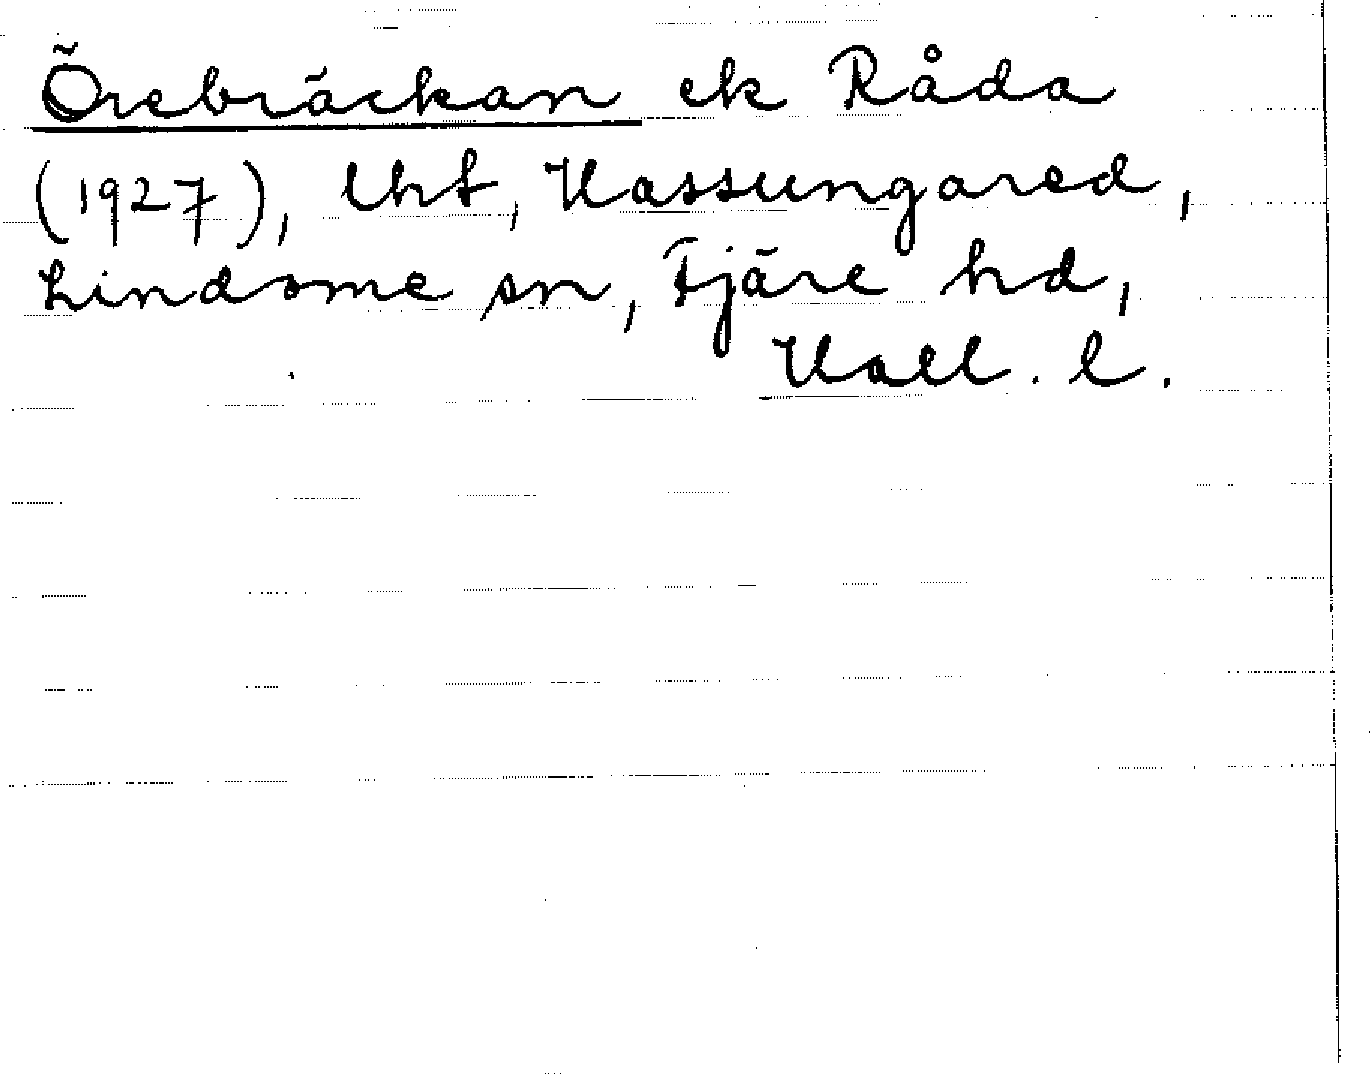 Örebräckan ek Råda
(1927), lht, Hassungared,
Lindome sn, Fjäre hd,
Hall. l.